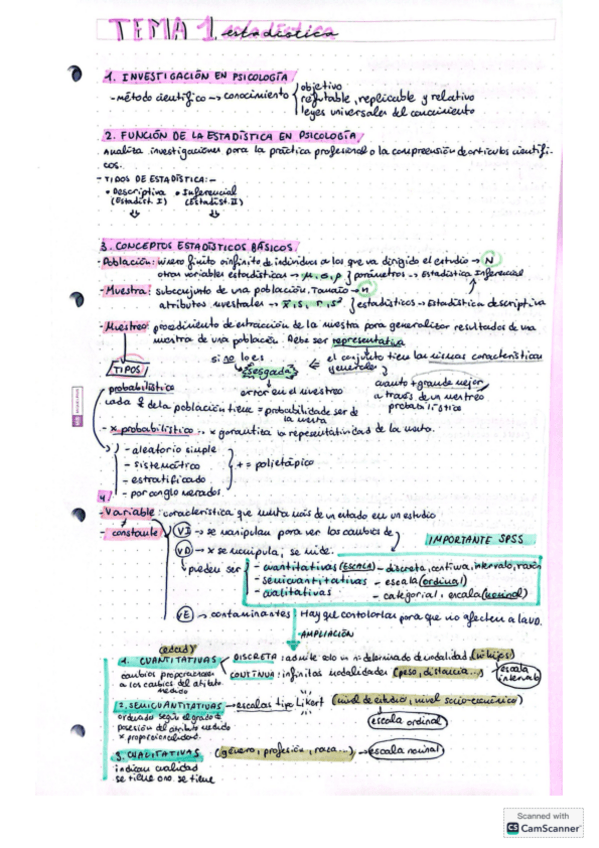 TEMA 1. estadística
1. INVESTIGACIÓN EN PSICOLOGÍA
- método científico -> conocimiento
objetivo
refutable, replicable y relativo
leyes universales del conocimiento
2. FUNCIÓN DE LA ESTADÍSTICA EN PSICOLOGÍA
Analiza investigaciones para la práctica profesional o la comprensión de artículos científi-
cos.
- TIPOS DE ESTADÍSTICA: -
• Descriptiva • Inferencial
(Estadíst. I) (Estadíst. II)
3. CONCEPTOS ESTADÍSTICOS BÁSICOS.
- Población: número finito o infinito de individuos a los que va dirigido el estudio -> N
otras variables estadísticas -> μ, σ, ρ } parámetros -> Estadística Inferencial
- Muestra: subconjunto de una población. Tamaño -> n
atributos muestrales -> x̄, s, r, s² } estadísticos -> Estadística descriptiva
- Muestreo: procedimiento de extracción de la muestra para generalizar resultados de una
muestra de una población. Debe ser representativa
si no lo es el conjunto tiene las mismas características
generales
TIPOS sesgada
error en el muestreo
cuanto + grande mejor
a través de un muestreo
probabilístico
probabilístico
cada de la población tiene = probabilidad de ser de
la muestra
- x probabilístico -> x garantiza la representatividad de la muestra.
- aleatorio simple
- sistemático
- estratificado
- por conglomerados
+ = polietápico
4
- Variable: característica que muestra más de un estado en un estudio
- constante
VI -> se manipulan para ver los cambios de
VD -> x se manipula; se mide.
IMPORTANTE SPSS
pueden ser
- cuantitativas (ESCALA) - discreta, continua, intervalo, razón
- semicuantitativas - escala (ordinal)
- cualitativas - categorial, escala (nominal)
VE -> contaminantes Hay que controlarlas para que no afecten a la VD.
AMPLIACIÓN
(edad)
1. CUANTITATIVAS
cambios proporcionales
a los cambios del atributo
medido
DISCRETA: admite solo un nº determinado de modalidad (nº hijos)
CONTINUA: infinitas modalidades (peso, distancia...)
escala
intervalo
2. SEMICUANTITATIVAS -> escalas tipo Likert (nivel de estudio, nivel socio-económico)
ordenado según el grado de
posesión del atributo medido
x proporcionalidad.
escala ordinal
3. CUALITATIVAS (género, profesión, raza...) -> escala nominal
indican cualidad
se tiene o no se tiene
Scanned with
CS CamScanner